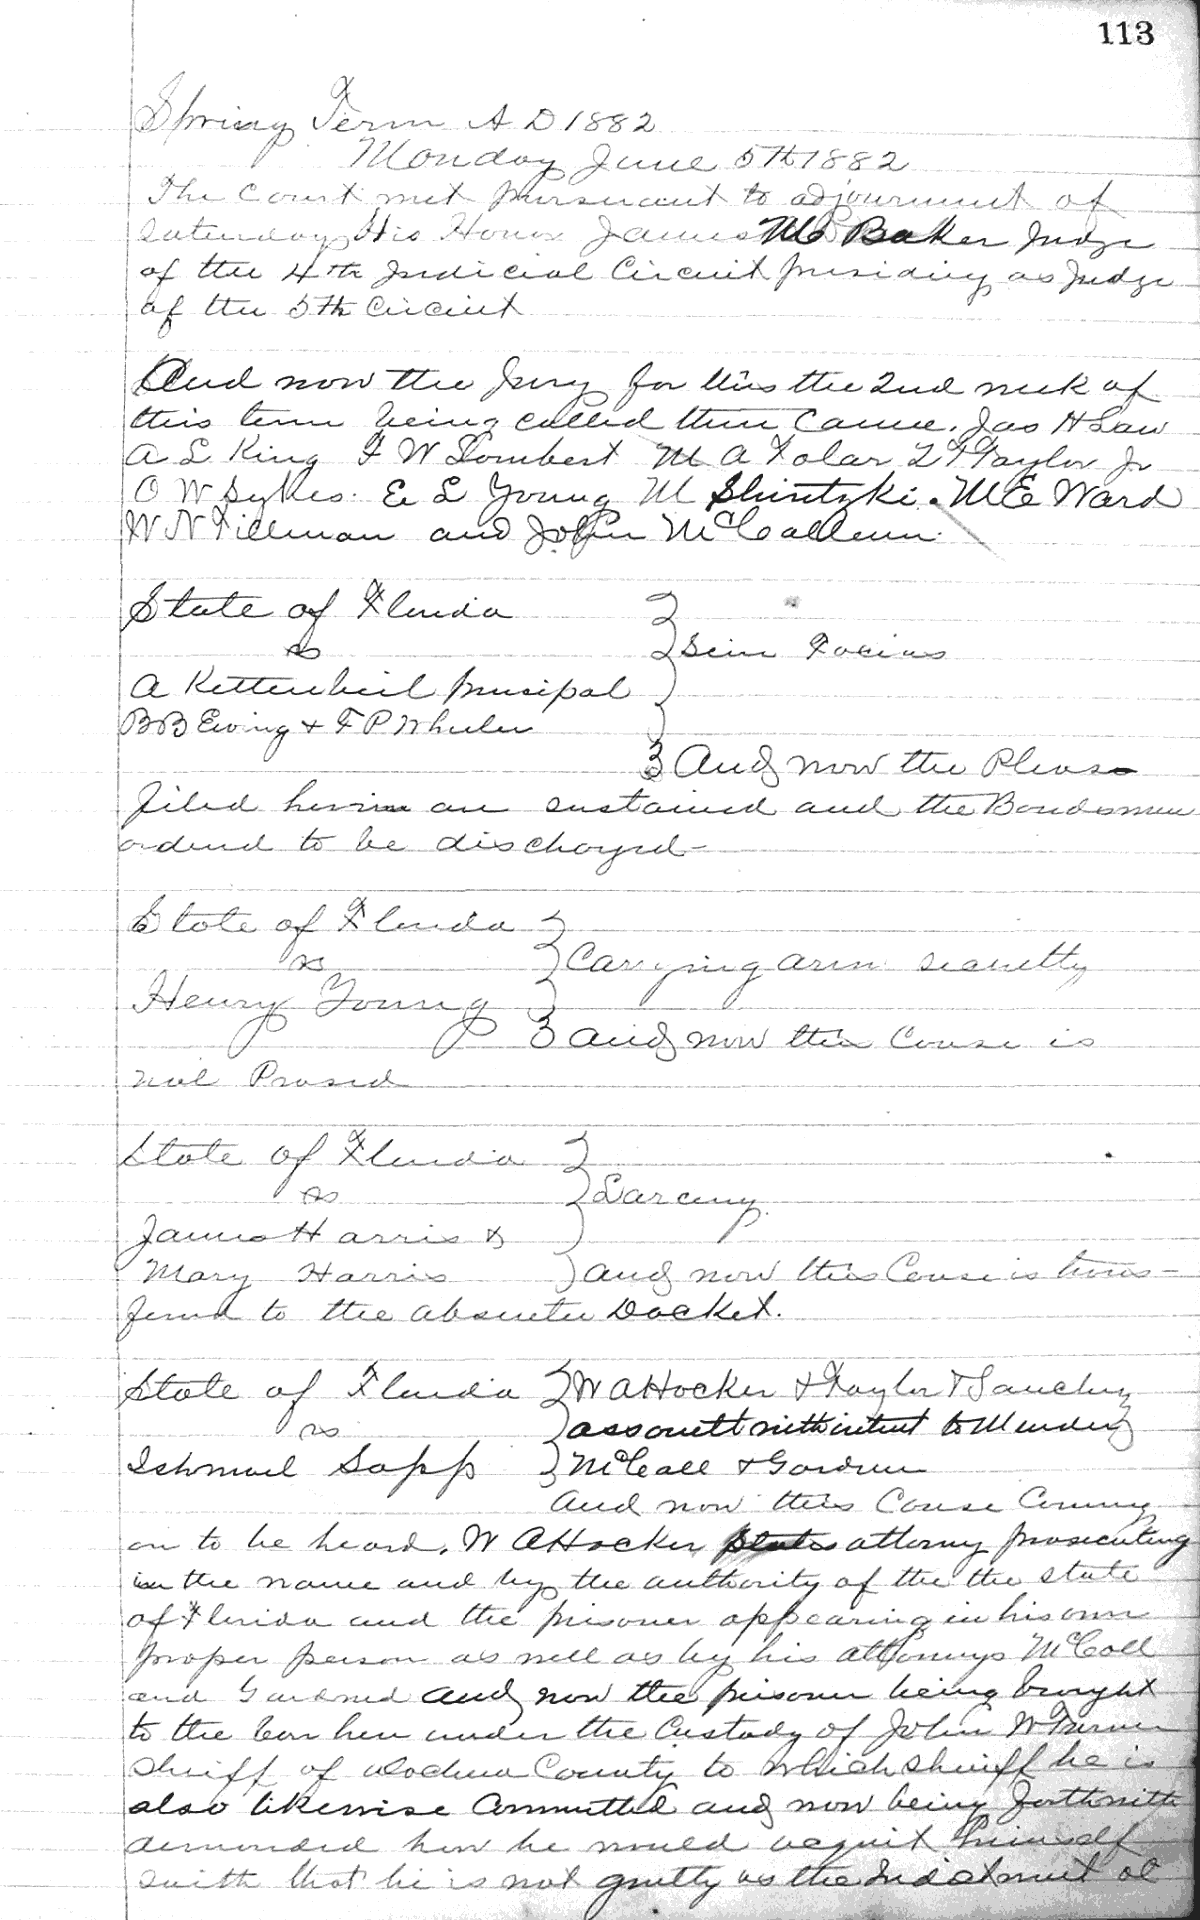 113
Spring Term A D 1882
Monday June 5th 1882
The Court met pursuant to adjournment of
Saturday His Honor James M Baker Judge
of the 4th Judicial Circuit presiding as Judge
of the 5th Circuit
And now the Jury for this the 2nd week of
this term being called then came. Jas H Law
A L King F W Lambert M A Tolar L F Taylor Jr
O W Sykes. E L Young M Shintzki. M E Ward
W N Tillman and John McCallum.
State of Florida
vs
Scire Facias
A Kettenbeil principal
B B Ewing & F P Wheeler
And now the Pleas
filed herein are sustained and the Bondsmen
ordered to be discharged-
State of Florida
vs
Carrying arms secretly
Henry Young
And now this Cause is
nol Prosed
State of Florida
vs
Larceny.
James Harris &
Mary Harris
And now this Cause is trans-
ferred to the absentee Docket.
State of Florida
W A Hocker & Taylor & Sanchez
vs
assault with intent to Murder
Ishmael Sapp
McCall & Gardner
And now this Cause Coming
on to be heard. W A Hocker states attorney prosecuting
in the name and by the authority of the the state
of Florida and the prisoner appearing in his own
proper person as well as by his attorneys McCall
and Gardner And now the prisoner being brought
to the bar here under the Custody of John W Turner
Sheriff of Alachua County to which Sheriff he is
also likewise Committed and now being forthwith
demanded how he would acquit himself
saith that he is not guilty as the Indictment al